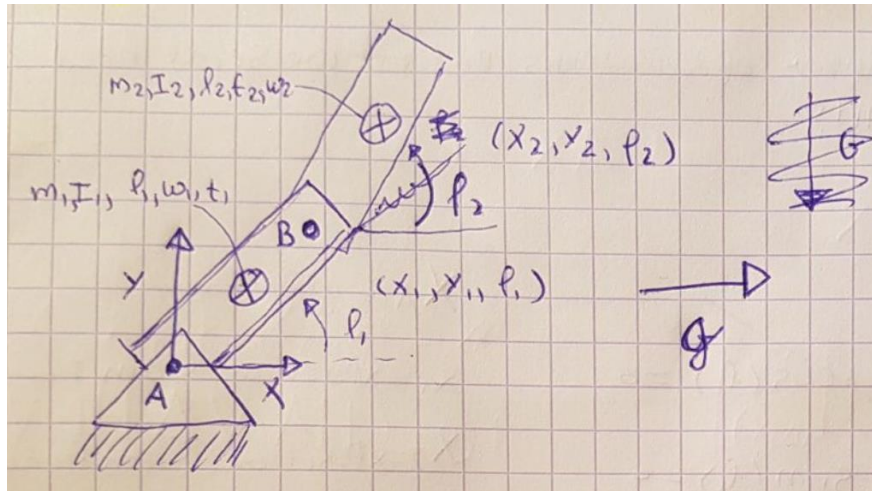 m₂, I₂, l₂, t₂, w₂
(x₂, y₂, φ₂)
G
m₁, I₁, l₁, w₁, t₁
B
φ₂
y
(x₁, y₁, φ₁)
φ₁
g
A
x